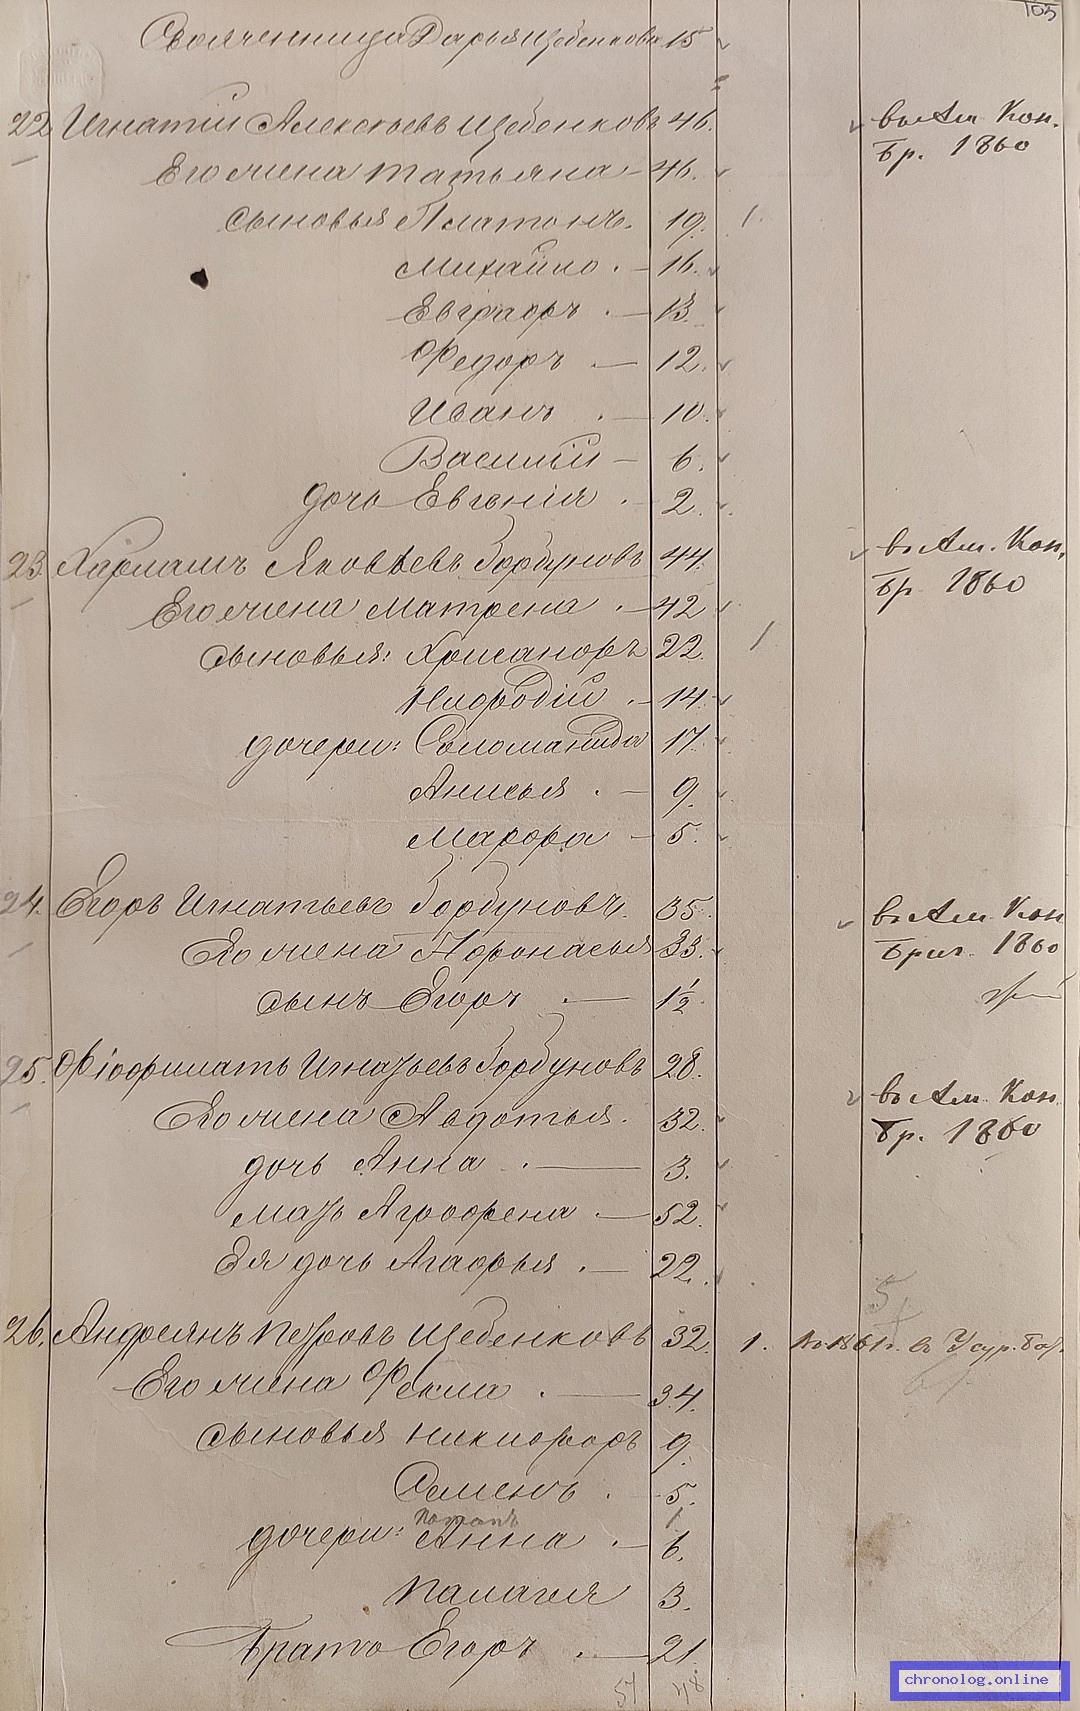 105
Свояченница Дарья Щебенкова 15
22 Игнатій Алексѣевъ Щебенковъ 46. въ Ам. Кон.
Его жена Татьяна 46. Бр. 1860
сыновья Платонъ. 19. 1.
Михайло. 16.
Евграфъ. 13.
Федоръ 12.
Иванъ. 10.
Василій 6.
дочь Евгенія. 2.
23. Харлампъ Яковлевъ Горбуновъ 44. въ Ам. Кон.
Его жена Матрена. 42 Бр. 1860
сыновья: Хрисанфъ 22. 1
14.
дочери: Соломанида 17.
Анисья. 9.
Марфа 5.
24. Егоръ Игнатьевъ Горбуновъ. 35. въ Ам. Кон
Его жена Афонасья 33. Бриг. 1860
сынъ Егоръ. 1½.
25. Фіофилатъ Игнатьевъ Горбуновъ 28. въ Ам. Кон.
Его жена Авдотья. 32. Бр. 1860
дочь Анна. 3.
мать Агрофена. 52.
Ея дочь Агафья. 22.
5
26. Андреянъ Петровъ Щебенковъ 32. 1. 1861г. въ Усур. бат.
Его жена Фекла. 34.
сыновья Никифоръ 9.
Семенъ. 5.
Потапъ 1
дочери: Анна. 6.
Палагея 3.
Братъ Егоръ. 21.
57 48
chronolog.online